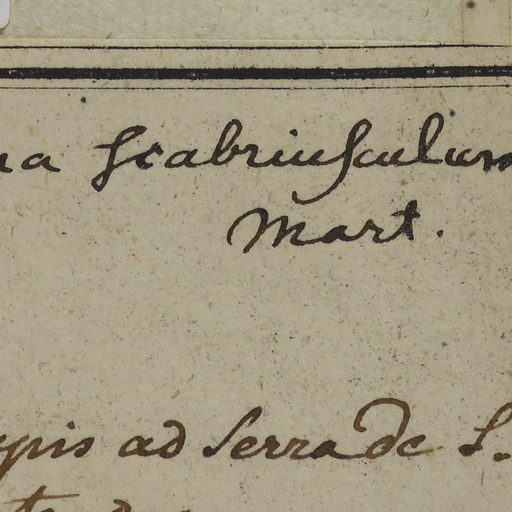 na scabriusculum
Mart.
ypis ad Serra de S.